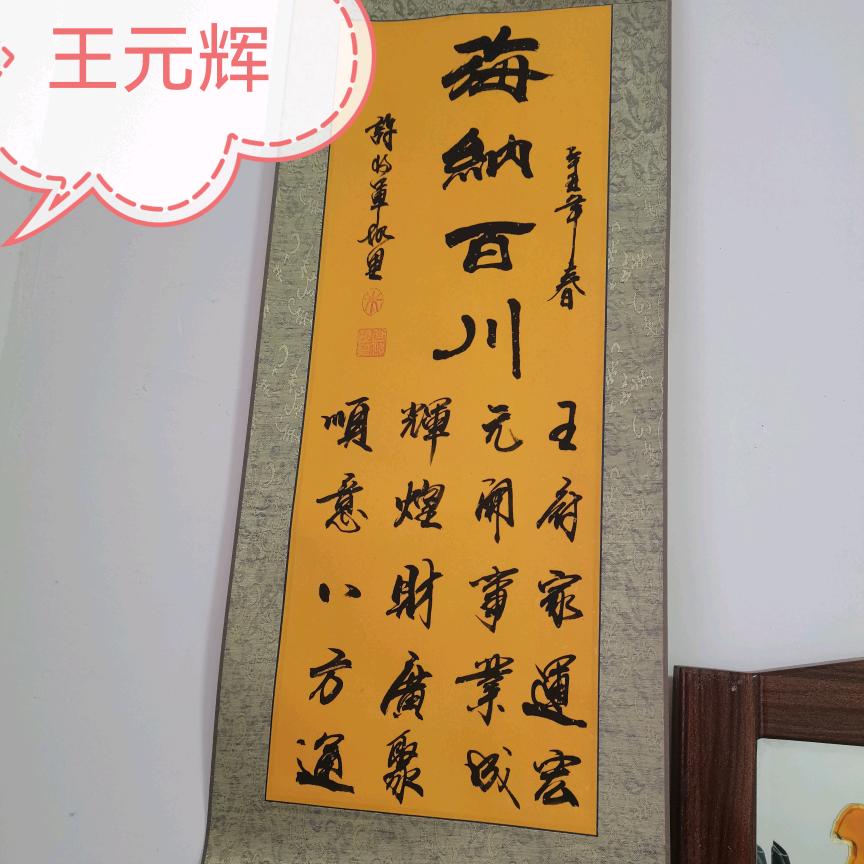 王元辉
海納百川
辛丑年春
王府家運宏
元開事業成
輝煌財廣聚
順意八方通